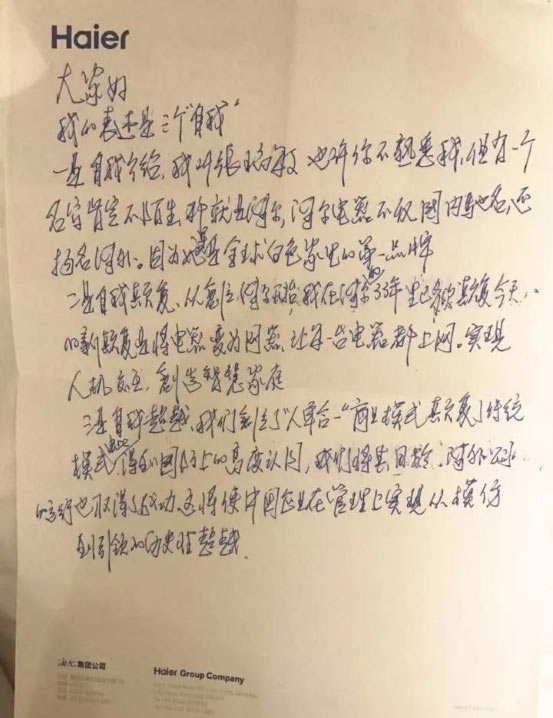 Haier
大家好
我的表述是三个"自我"
一是自我介绍、我叫张瑞敏 也许你不熟悉我,但有一个
名字肯定不陌生,那就是海尔,海尔电器不仅国内驰名,还
扬名海外。因为她是全球白色家电的第一品牌
二是自我颠复、从创立海尔开始,我在海尔的33年里已多次颠复今天
的新颠复是将电器变为网器,让每一台电器都上网。实现
人机交互,创造智慧家庭
三是自我超越、我们创立了"人单合一"商业模式颠复了传统
模式 得到国际上的高度认同,我们将其
也取得了成功.这将使中国企业在管理上实现从模仿
到引领的历史性超越
集团公司
Haier Group Company